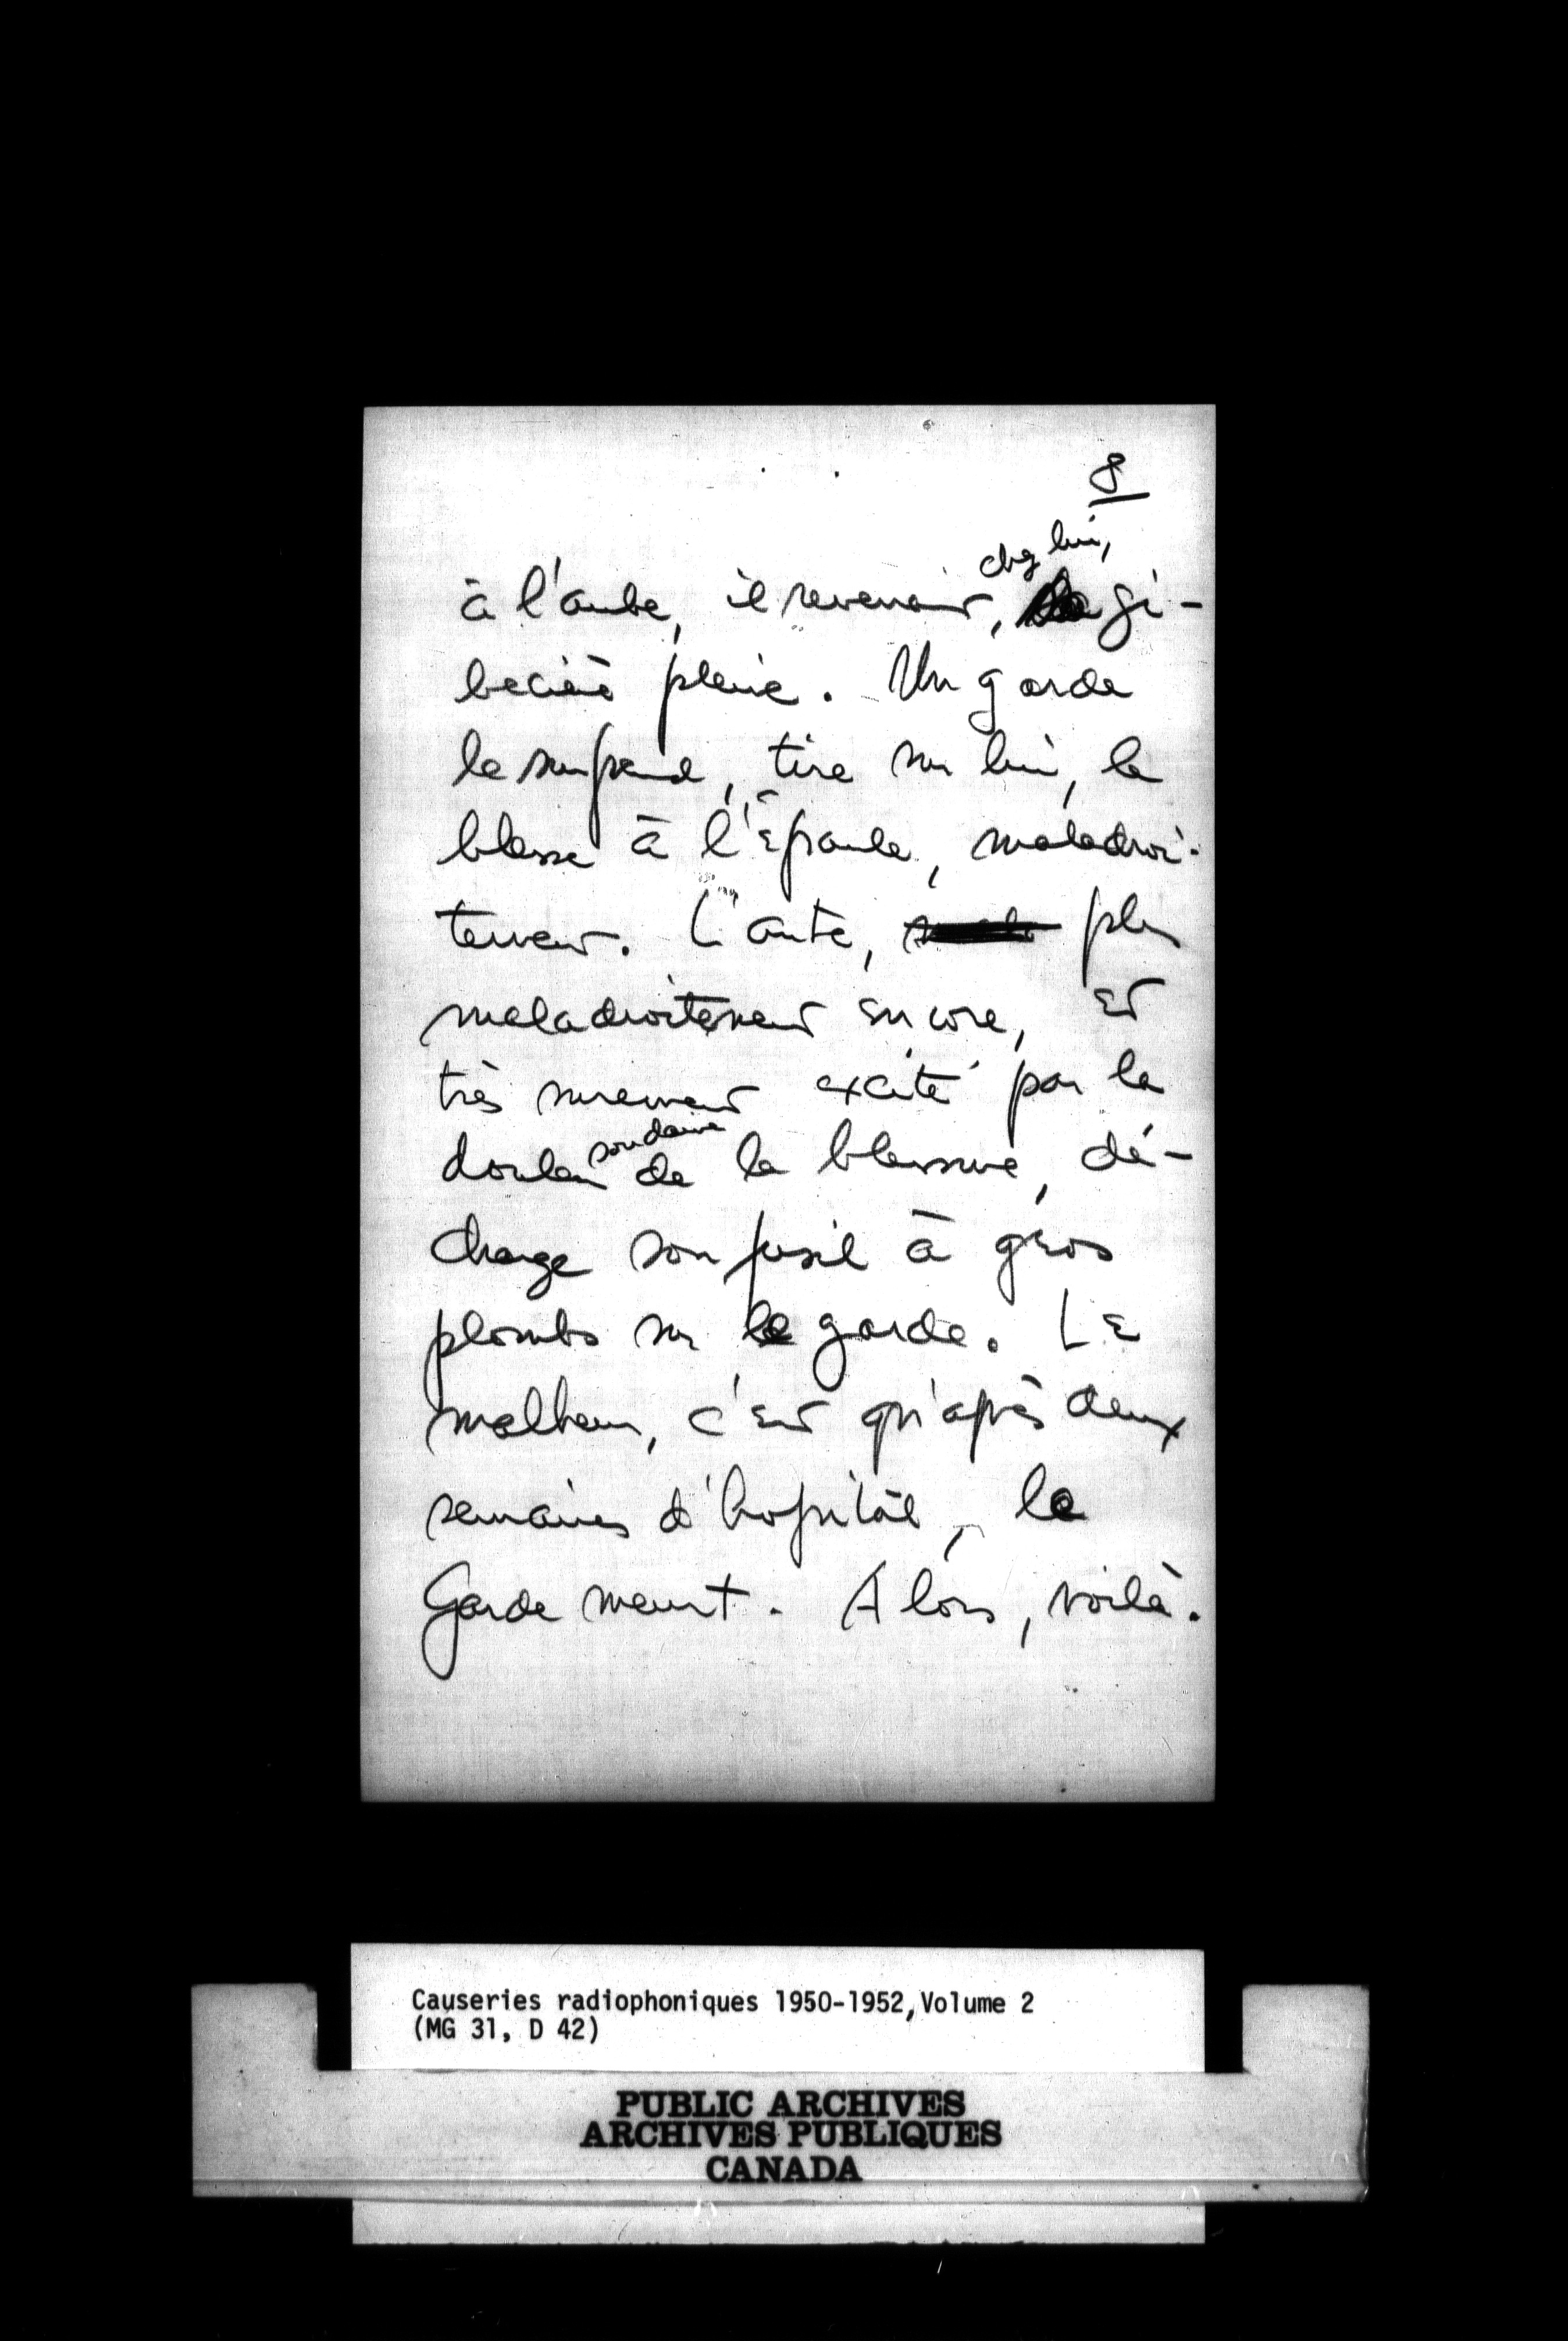 8
chez lui,
à l'aube, il revenait, la gi-
becière pleine. Un garde
le surprend, tire sur lui, le
blesse à l'épaule, maladroi-
tement. L'autre, plus
maladroitement encore, et
très surement excité par la
soudaine
douleur de la blessure, dé-
charge son fusil à gros
plombs sur le garde. Le
malheur, c'est qu'après deux
semaines d'hopital, le
Garde meurt. Alors, voilà.
Causeries radiophoniques 1950-1952, Volume 2
(MG 31, D 42)
PUBLIC ARCHIVES
ARCHIVES PUBLIQUES
CANADA